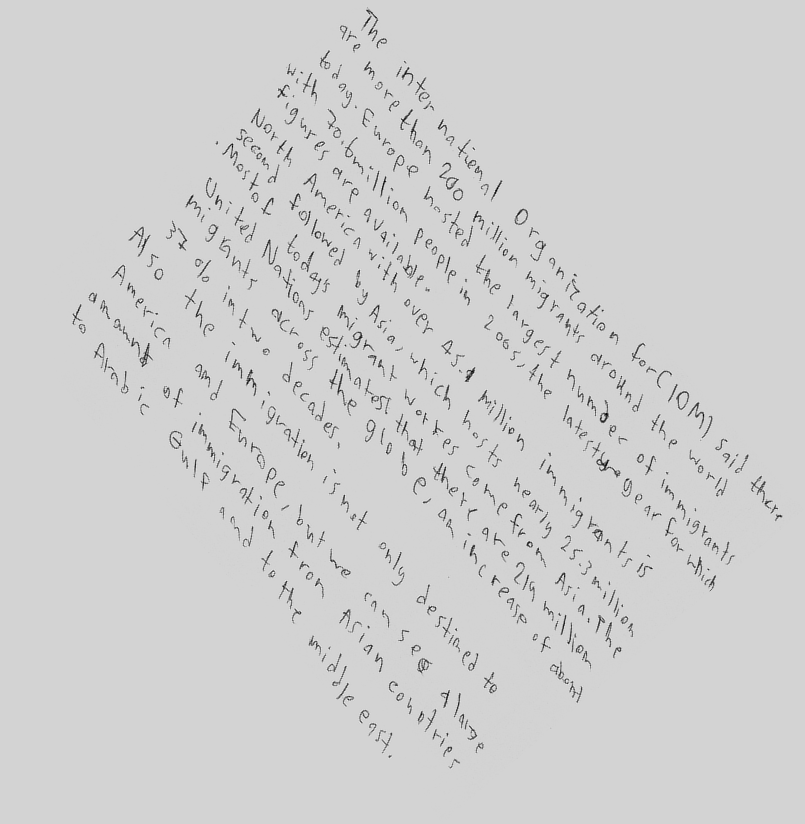 The inter national Organization for (IOM) said there
are more than 200 million migrants around the world
today. Europe hosted the largest number of immigrants
with 70.6 million people in 2005, the latest year for which
figures are available.
North America with over 45.1 million immigrants is
second followed by Asia, which hosts nearly 25.3 million
. Most of todays migrant workes come from Asia. The
United Nations estimates that there are 214 million
migrants across the globe, an increase of about
37 % in two decades.
Also the immigration is not only destined to
America and Europe, but we can see a large
amount of immigration from Asian countries
to Arabic Gulf and to the middle east.